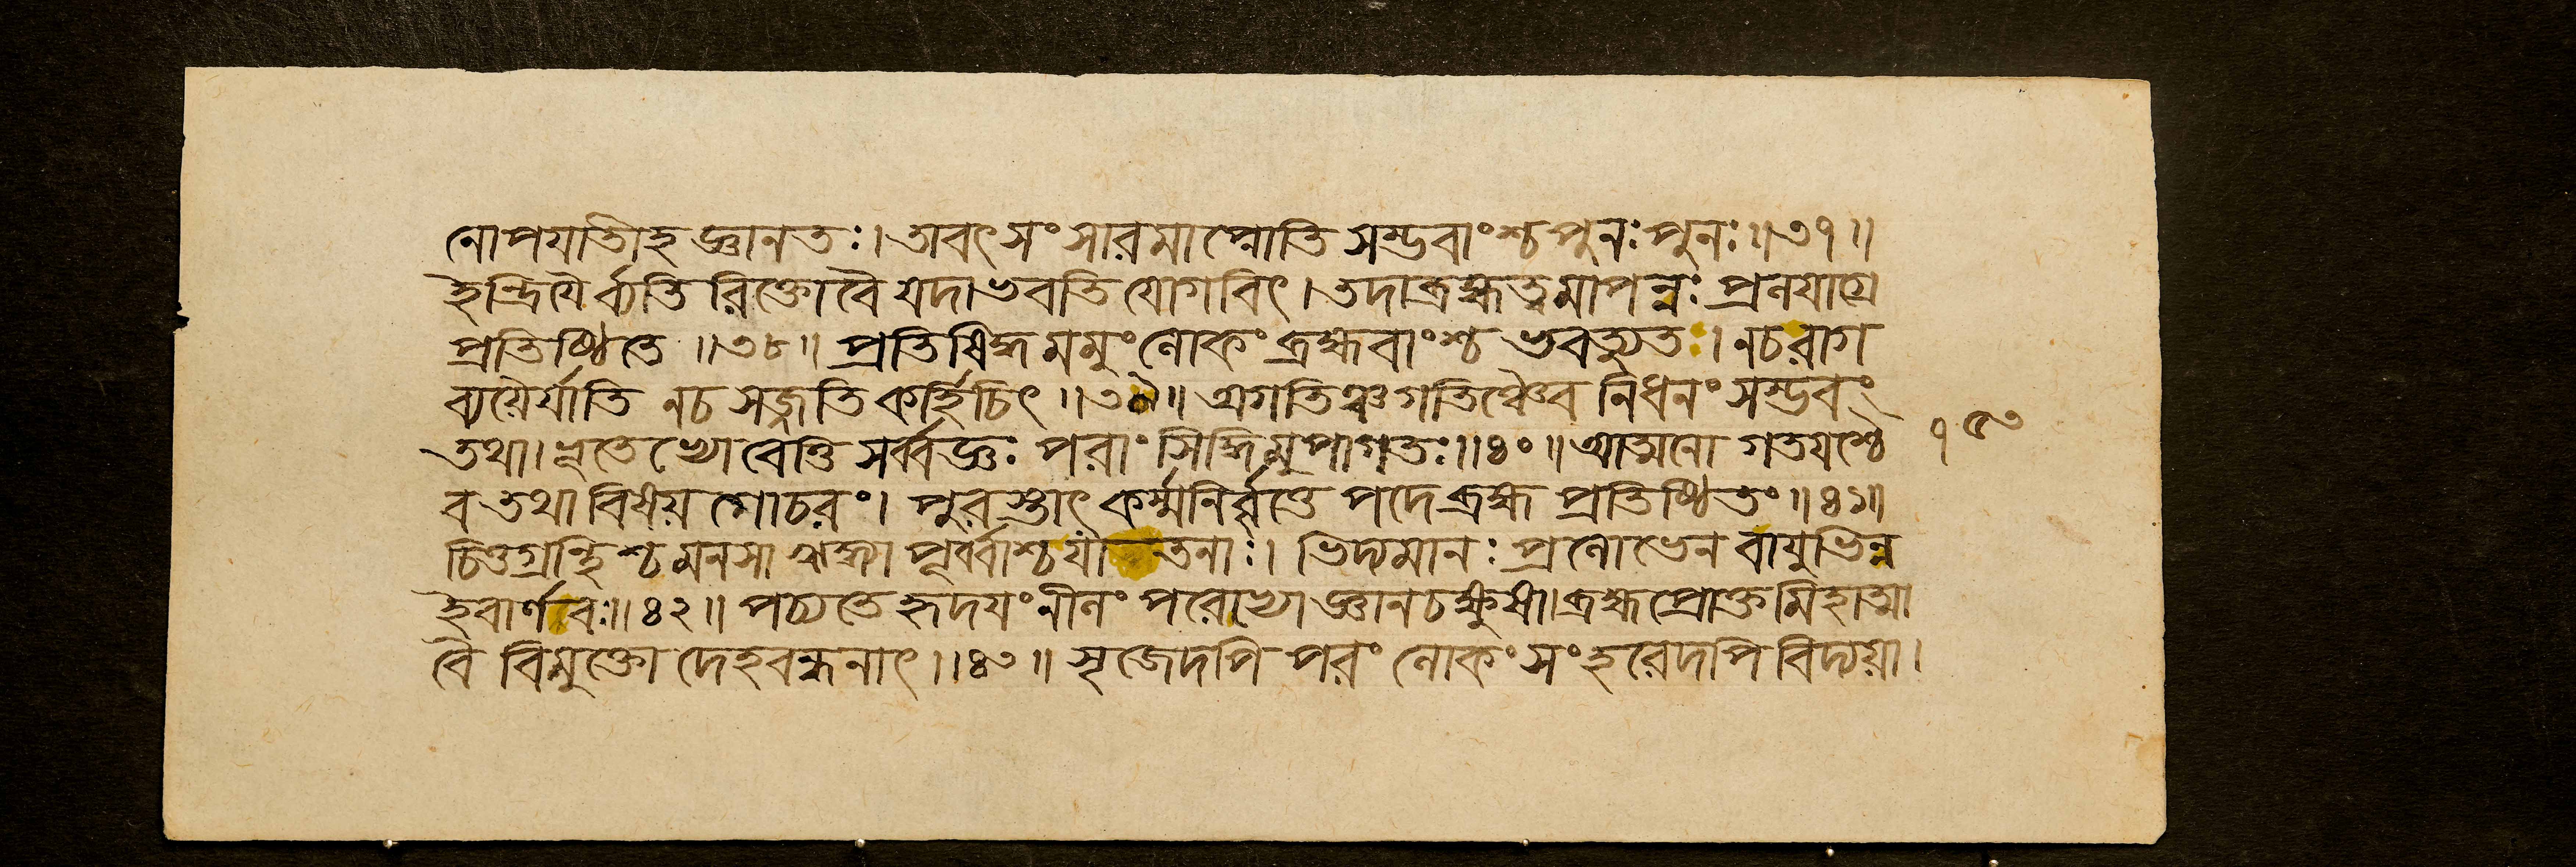 নোপযাতীহ জ্ঞানতঃ। তাবৎ সংসারমাপ্নোতি সম্ভবাংশ্চ পুনঃ পুনঃ॥৩৭॥
ইন্দ্রিয়ৈর্ব্যতিরিক্তো বৈ যদা ভবতি যোগবিৎ। তদা ব্রহ্মত্বমাপন্নঃ প্রলয়াগ্রে
প্রতিষ্ঠিতে॥৩৮॥ প্রতিষিহ্মমমুং লোকং ব্রহ্মবাংশ্চ ভবত্যুত। নচ রাগ
ব্যয়ৈর্যাতি নচ সজ্জতি কর্হিচিৎ॥৩৯॥ এগতিঞ্চ গতিঞ্চৈব নিধনং সম্ভবং
তথা। বেত্তি সর্ব্বজ্ঞঃ পরাং সিদ্ধিমুপাগতঃ॥৪০॥ আত্মনো গতয়শ্চৈ
ব তথা বিষয় গোচরং। পুরস্তাৎ কর্ম্মনির্ব্বৃত্তে পদে ব্রহ্ম প্রতিষ্ঠিতং॥৪১॥
চিত্তগ্রন্থিশ্চ মনসা পূর্ব্বাশ্চ যাতনাঃ। ভিদ্যমানঃ প্রলোভেন বায়ুভিন্ন
ইবার্ণবঃ॥৪২॥ পঠ্যতে হৃদয়ং নীলং পরোখো জ্ঞানচক্ষুষী। ব্রহ্মপ্রোক্তমিহাত্মা
বৈ বিমুক্তো দেহবন্ধনাৎ॥৪৩॥ সৃজেদপি পরং লোকং সংহরেদপি বিদ্যয়া।
১৫৩